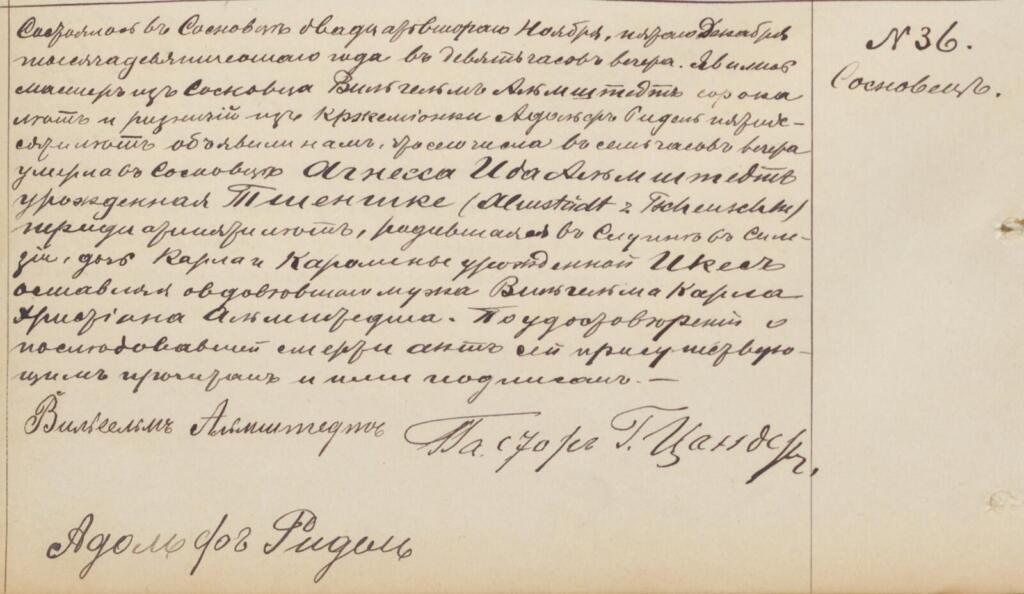 Состоялось въ Сосновцѣ двадцать втораго Ноября, пятаго Декабря
тысяча девятисотаго года въ девять часовъ вечера. Явились
мастеръ изъ Сосновца Вильгельмъ Альмштедтъ сорока
лѣтъ и изъ Адольфъ Ридель
лѣтъ объявили намъ, что сего числа въ семь часовъ вечера
умерла въ Сосновцѣ Агнесса Ида Альмштедтъ
урожденная Тшеншке (Almstädt z Tschenschke)
тридцати пяти лѣтъ, родившаяся въ въ Силе-
зіи, дочь Карла и Каролины урожденной Икесъ
оставляя овдовѣвшаго мужа Вильгельма Карла
Христіана Альмштедта. По удостовѣреніи о
послѣдовавшей смерти актъ сей присутствую-
щимъ прочитанъ и ими подписанъ. —
Вильгельмъ Альмштедтъ
Пасторъ Г. Цандеръ.
Адольфъ Ридель
N 36.
Сосновецъ.